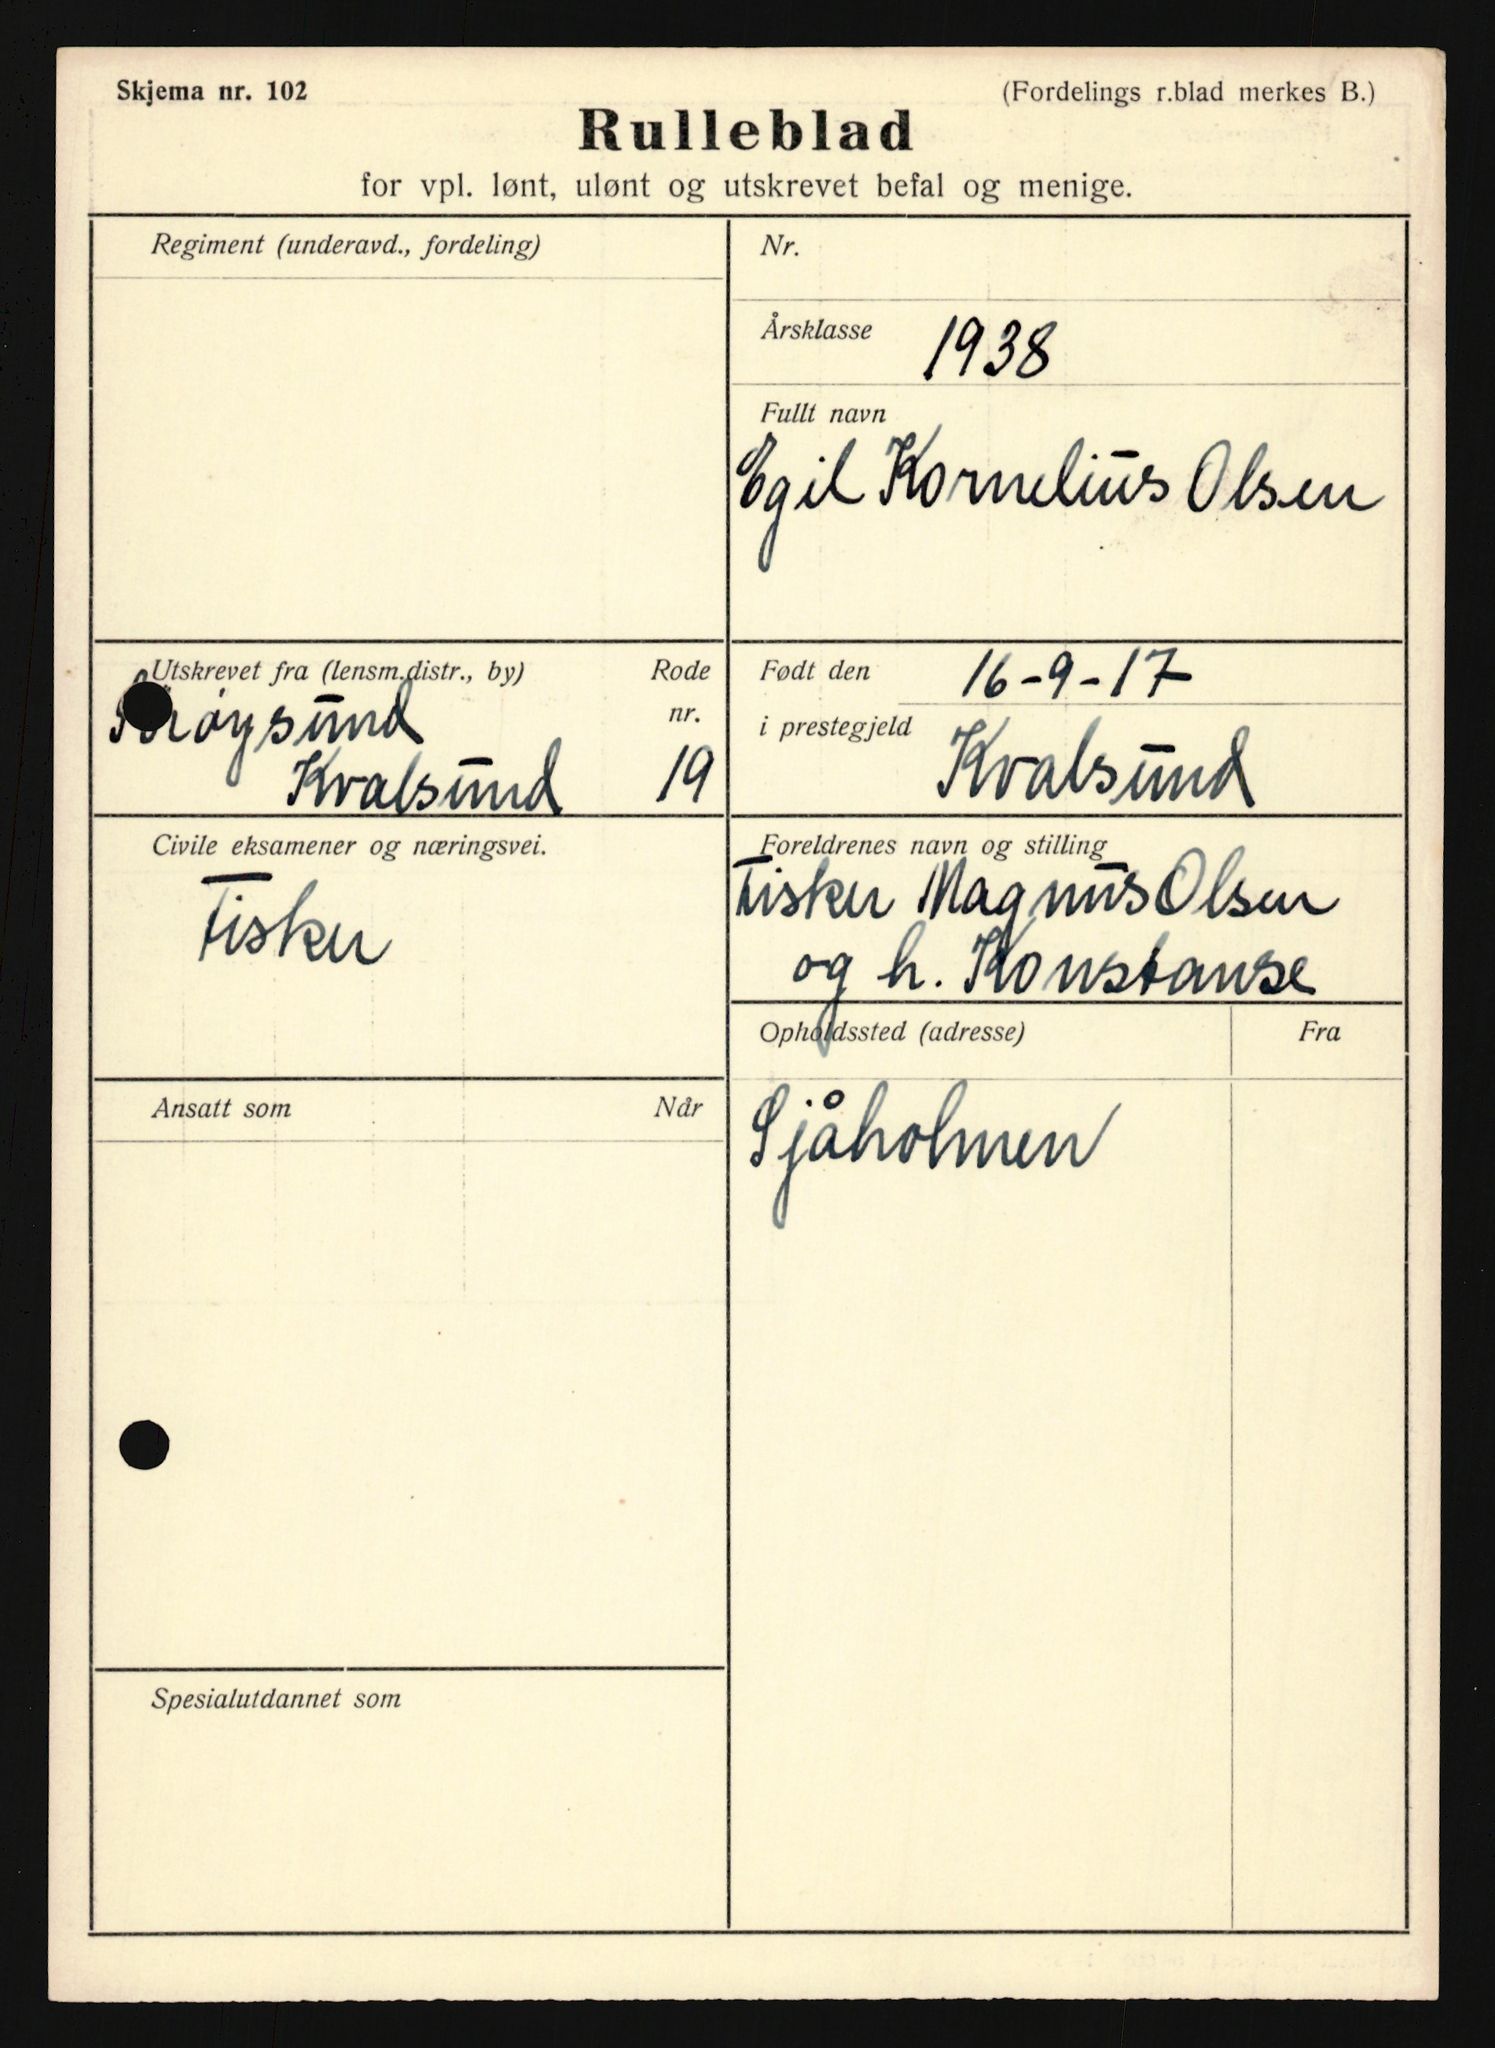 Skjema nr. 102
(Fordelings r.blad merkes B.)
Rulleblad
for vpl. lønt, ulønt og utskrevet befal og menige.
Regiment (underavd., fordeling)
Nr.
Årsklasse 1938
Fullt navn
Egil Kornelius Olsen
Utskrevet fra (lensm.distr., by)
Rode nr.
Kvalsund 19
Født den 16-9-17
i prestegjeld Kvalsund
Civile eksamener og næringsvei.
Fisker
Foreldrenes navn og stilling
Fisker Magnus Olsen
og h. Konstanse
Opholdssted (adresse)
Fra
Sjåholmen
Ansatt som
Når
Spesialutdannet som